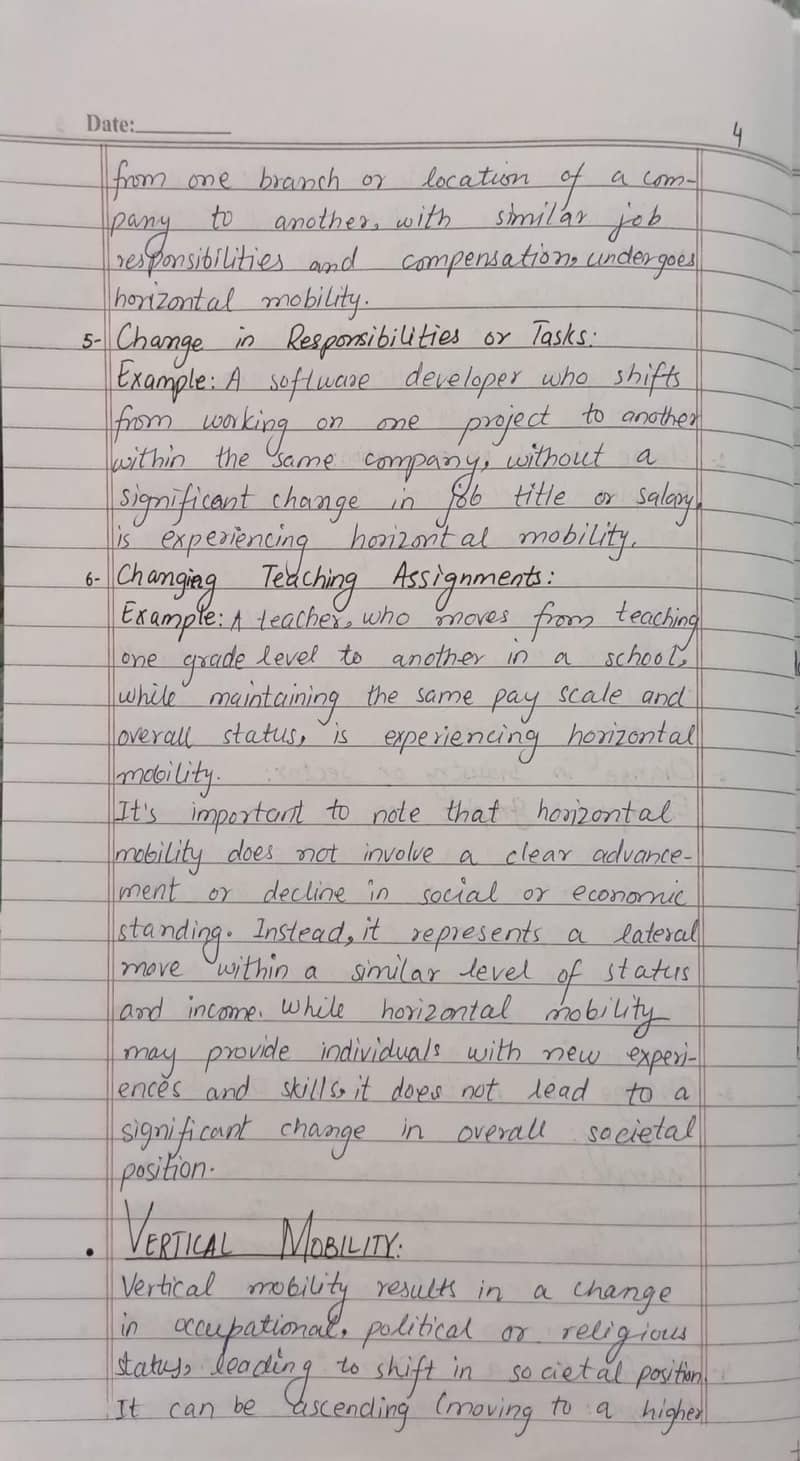 Date:
4
from one branch or location of a com-
pany to another, with similar job
responsibilities and compensation, undergoes
horizontal mobility.
5- Change in Responsibilities or Tasks:
Example: A software developer who shifts
from working on one project to another
within the same company, without a
significant change in job title or salary,
is experiencing horizontal mobility.
6- Changing Teaching Assignments:
Example: A teacher, who moves from teaching
one grade level to another in a school,
while maintaining the same pay scale and
overall status, is experiencing horizontal
mobility.
It's important to note that horizontal
mobility does not involve a clear advance-
ment or decline in social or economic
standing. Instead, it represents a lateral
move within a similar level of status
and income. While horizontal mobility
may provide individuals with new experi-
ences and skills, it does not lead to a
significant change in overall societal
position.
• VERTICAL MOBILITY:
Vertical mobility results in a change
in occupational, political or religious
status, leading to shift in societal position.
It can be ascending (moving to a higher